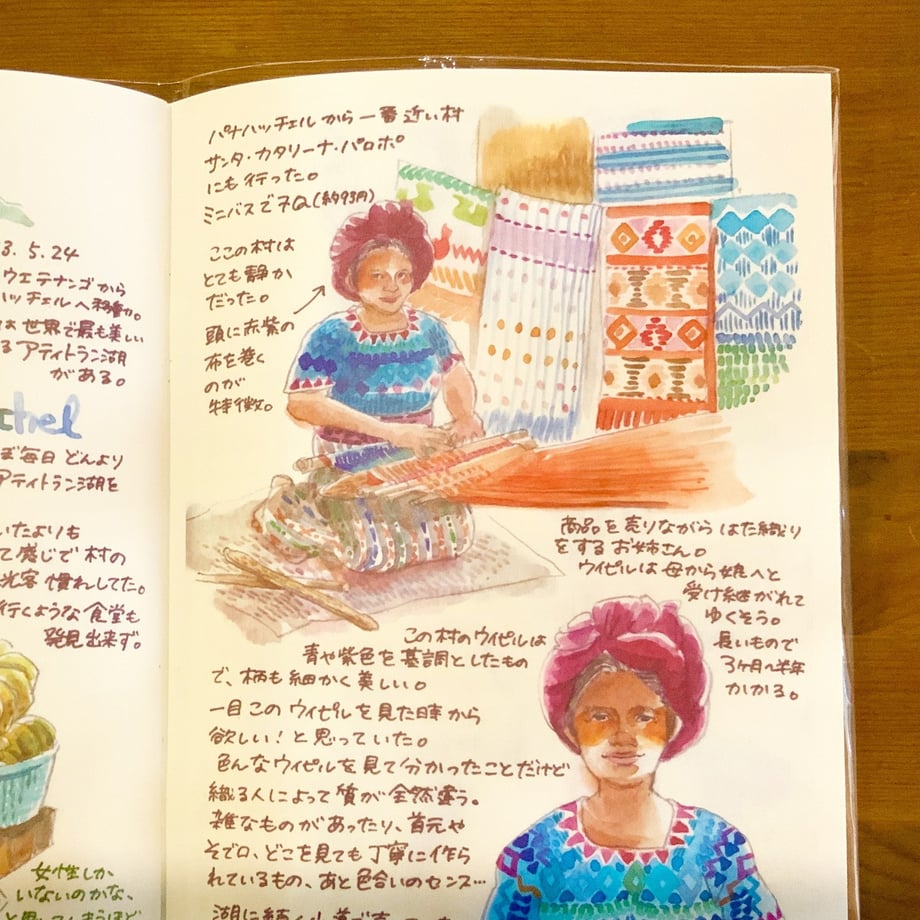 3.5.24
ウエテナンゴから
ハッチェルへ移動。
は世界で最も美しい
るアティトラン湖
がある。
chel
ぼ毎日どんより
アティトラン湖を
いたよりも
て感じで村の
光客慣れしてた。
行くような食堂も
発見出来ず。
女性しか
いないのかな、
と思ってしまうほど
パナハッチェルから一番近い村
サンタ・カタリーナ・パロポ
にも行った。
ミニバスで7Q(約93円)
ここの村は
とても静か
だった。
頭に赤紫の
布を巻く
のが
特徴。
商品を売りながらはた織り
をするお姉さん。
ウイピルは母から娘へと
受け継がれて
ゆくそう。
長いもので
3ヶ月〜半年
かかる。
この村のウイピルは
青や紫色を基調としたもの
で、柄も細かく美しい。
一目このウイピルを見た時から
欲しい!と思っていた。
色んなウイピルを見て分かったことだけど
織る人によって質が全然違う。
雑なものがあったり、首元や
そで口、どこを見ても丁寧に作ら
れているもの、あと色合いのセンス…
湖に続く